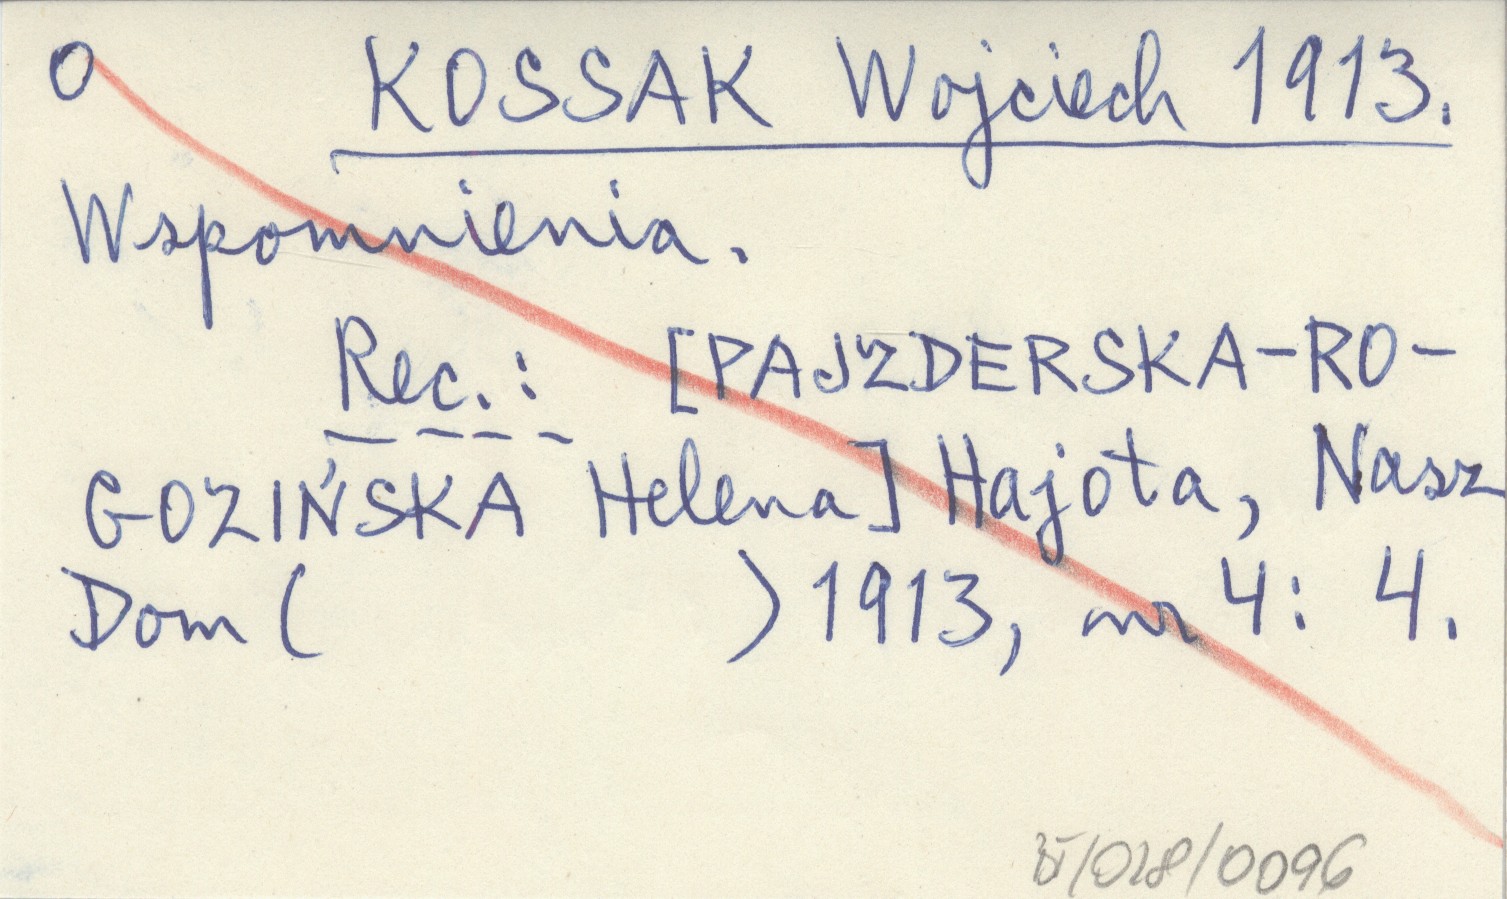 O KOSSAK Wojciech 1913.
Wspomnienia.
Rec.: [PAJZDERSKA-RO-
GOZIŃSKA Helena] Hajota, Nasz
Dom ( ) 1913, nr 4: 4.
/028/0096